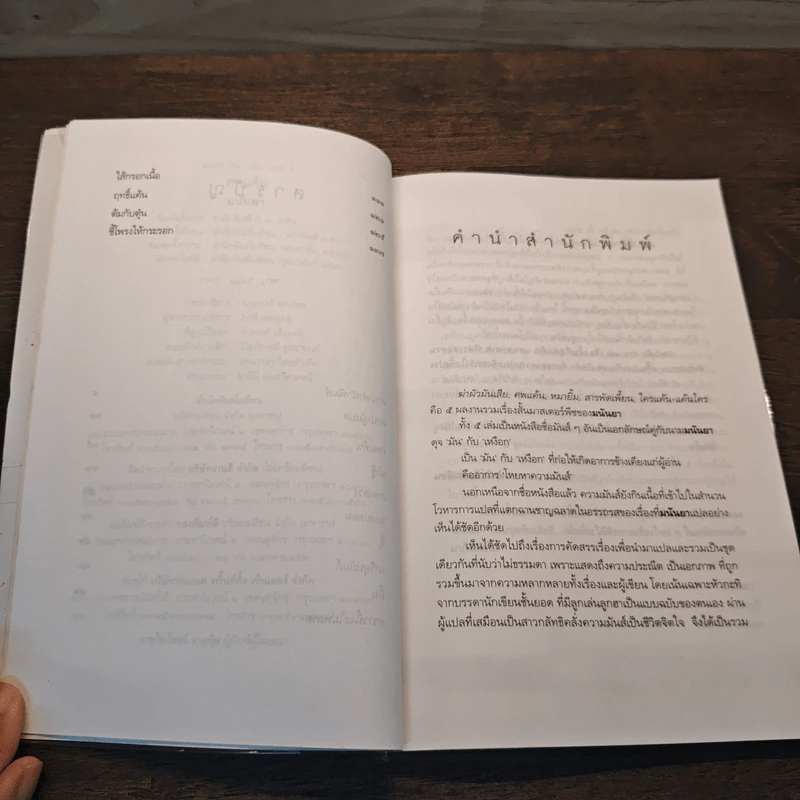 ไส้กรอกเนื้อ
ฤทธิ์แค้น
ต้มกับตุ๋น
ชี้โพรงให้กระรอก
๑๒๕
๑๓๗
คำนำสำนักพิมพ์
ฆ่าผัวมันเสีย, ศพแค้น, หมายิ้ม, สารพัดเพี้ยน, ใครแค้น-แค้นใคร
คือ ๕ ผลงานรวมเรื่องสั้นมาสเตอร์พีซของมนันยา
ทั้ง ๕ เล่มเป็นหนังสือชื่อมันส์ ๆ อันเป็นเอกลักษณ์คู่กับนามมนันยา
ดุจ 'มัน' กับ 'เหงือก'
เป็น 'มัน' กับ 'เหงือก' ที่ก่อให้เกิดอาการข้างเคียงแก่ผู้อ่าน
คืออาการ 'โหยหาความมันส์'
นอกเหนือจากชื่อหนังสือแล้ว ความมันส์ยังกินเนื้อที่เข้าไปในสำนวน
โวหารการแปลที่แตกฉานชาญฉลาดในอรรถรสของเรื่องที่มนันยาแปลอย่าง
เห็นได้ชัดอีกด้วย
เห็นได้ชัดไปถึงเรื่องการคัดสรรเรื่องเพื่อนำมาแปลและรวมเป็นชุด
เดียวกันที่นับว่าไม่ธรรมดา เพราะแสดงถึงความประณีต เป็นเอกภาพ ที่ถูก
รวมขึ้นมาจากความหลากหลายทั้งเรื่องและผู้เขียน โดยเน้นเฉพาะหัวกะทิ
จากบรรดานักเขียนชั้นยอด ที่มีลูกเล่นลูกฮาเป็นแบบฉบับของตนเอง ผ่าน
ผู้แปลที่เสมือนเป็นสาวกลัทธิคลั่งความมันส์เป็นชีวิตจิตใจ จึงได้เป็นรวม